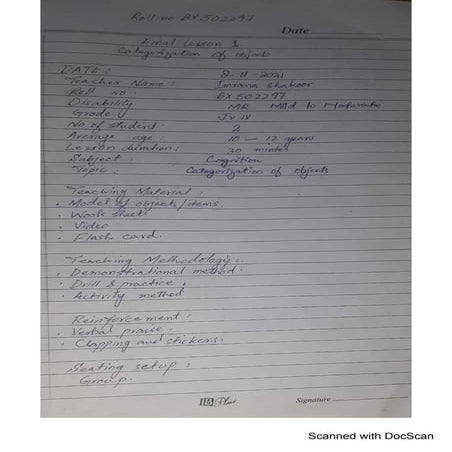 Roll no BX502297
Date
Final Lesson 1
Categorization of objects
DATE: 8-11-2021
Teacher Name: Imrana Shakoor
Roll no BX502297
Disability MR Mild to Moderate
Grade Jr IV
No of student. 2
Average age: 10 - 12 years
Lesson duration: 30 mintes
Subject Cognition
Topic: Categorization of objects
Teaching Material:
• Model of objects/items.
• Work sheets
• Video
• Flash card.
Teaching Methodology:
• Demonstrational method.
• Drill & practice.
• Activity method
Reinforcement:
• Verbal praise.
• Clapping and stickers.
Seating setup:
Group.
Plus Signature
Scanned with DocScan